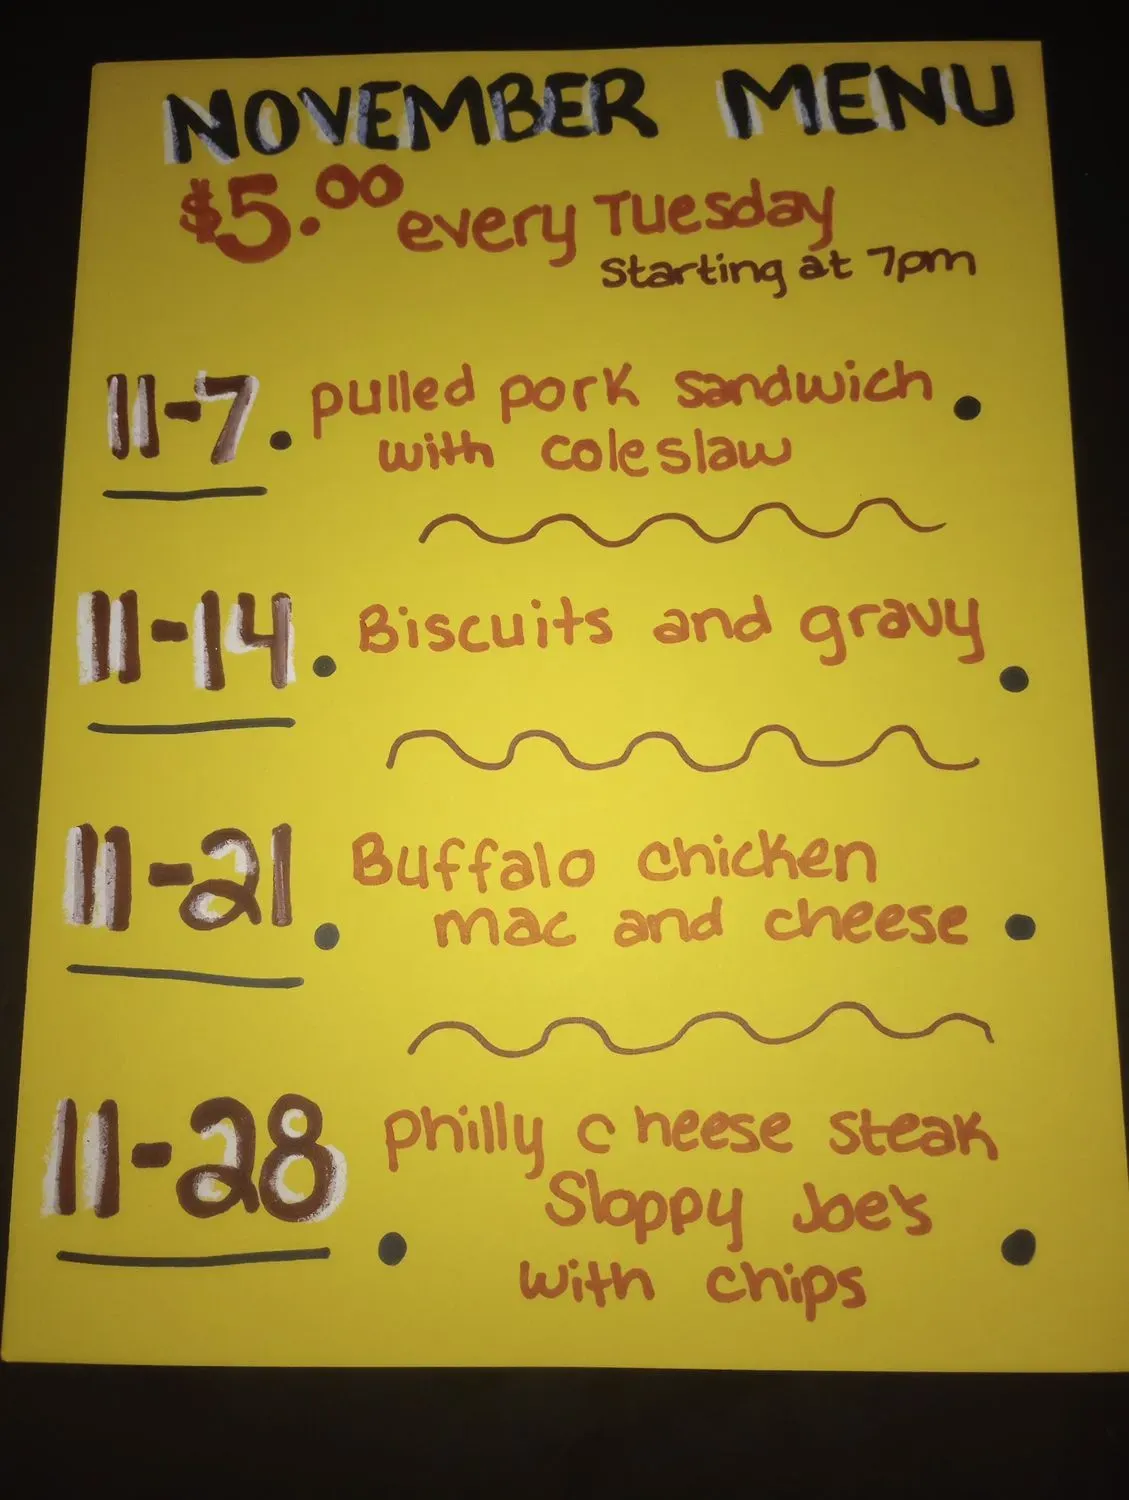 NOVEMBER MENU
$5.00 every Tuesday
Starting at 7pm
11-7 • pulled pork sandwich •
with coleslaw
11-14 • Biscuits and gravy •
11-21 • Buffalo chicken
mac and cheese •
11-28 • philly cheese steak
Sloppy Joe's •
with chips